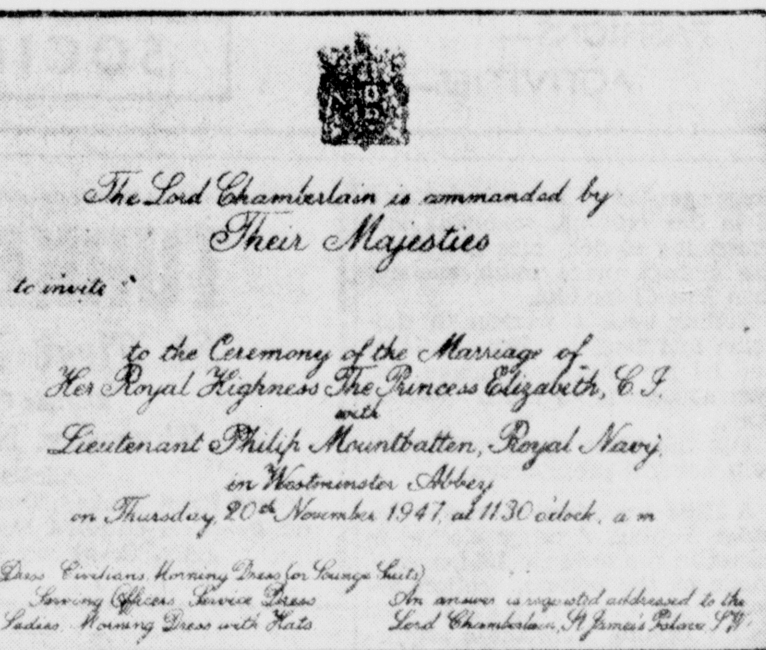 The Lord Chamberlain is commanded by
Their Majesties
to invite
to the Ceremony of the Marriage of
Her Royal Highness The Princess Elizabeth, C.I.
with
Lieutenant Philip Mountbatten, Royal Navy,
in Westminster Abbey
on Thursday, 20th November 1947, at 11.30 o'clock, a.m
Dress: Civilians, Morning Dress (or Lounge Suits)
Serving Officers, Service Dress
Ladies, Morning Dress with Hats.
An answer is requested addressed to the
Lord Chamberlain, St James's Palace, S.W.